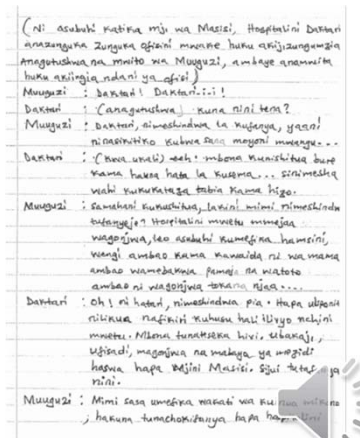 (Ni asubuhi katika mji wa Masisi, Hospitalini Daktari
anazunguka zunguka ofisini mwake huku akijizungumzia
Anagutushwa na mwito wa Muuguzi, ambaye anamwita
huku akiingia ndani ya ofisi)
Muuguzi : Daktari! Daktari...i!
Daktari : (anagutushwa) kuna nini tena?
Muuguzi : Daktari, nimeshindwa la kufanya, yaani
ninasikitiko kubwa sana moyoni mwangu...
Daktari : (kwa ukali) eeh! mbona kunishitua bure
kama hauna hata la kusema... sinimesha
wahi kukukataza tabia kama hizo.
Muuguzi : Samahani kukushitua, lakini mimi nimeshindwa
tufanyaje? Hospitalini mwetu mmejaa
wagonjwa, leo asubuhi kumefika hamsini,
wengi ambao kama kawaida ni wa mama
ambao wamebakwa pamoja na watoto
ambao ni wagonjwa tokana njaa...
Daktari : Oh! ni hatari, nimeshindwa pia. Hapa ulponit
nilikua nafikiri kuhusu hali iliyo nchini
mwetu. Mbona tunateseka hivi, ubakaji,
ufisadi, magonjwa na mabaya ya mezidi
haswa hapa Mjini Masisi. Sijui tufas ya
nini.
Muuguzi : Mimi sasa umefika wakati wa
; hakuna tunachokifanya hapa